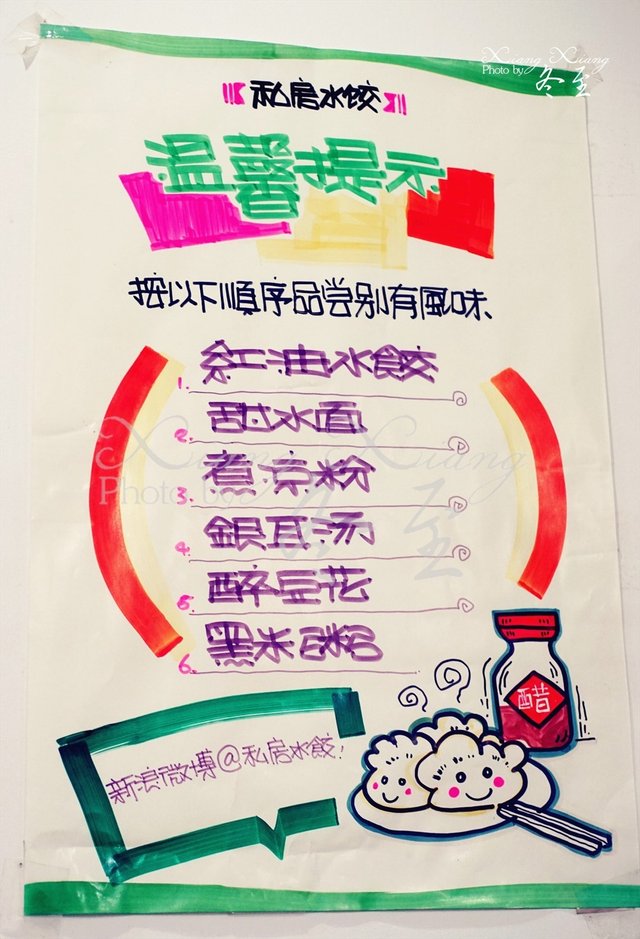 Xuang Xuang
Photo by 冬至
私房水餃
温馨提示
按以下順序品尝别有風味
1. 紅油水餃
2. 甜水面
3. 煮凉粉
4. 銀耳汤
5. 醉豆花
6. 黑米粥
醋
新浪微博@私房水餃!
Xuang Xuang
Photo by 冬至